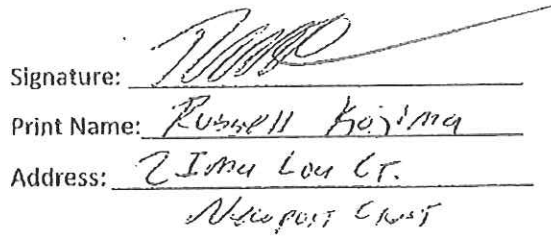 Signature:
Print Name: Russell Kojima
Address: 2 Ima Lou Ct.
Newport Crest